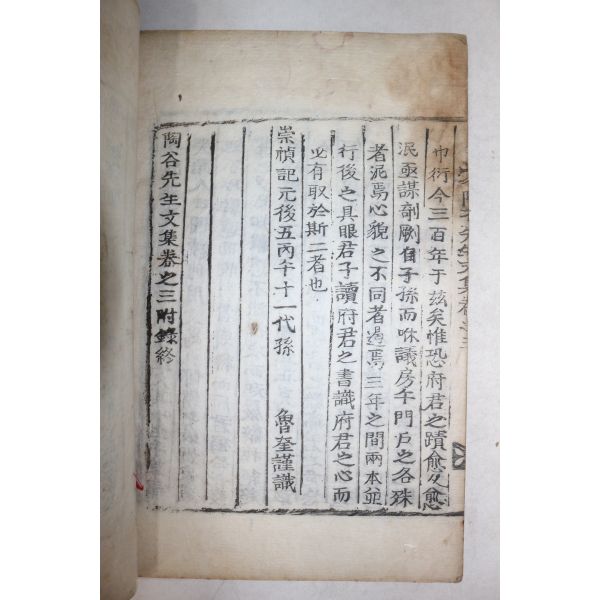 巾衍今三百年于玆矣惟恐府君之蹟愈久愈
泯亟謀剞劂自子孫而咻議房午門戶之各殊
者泥焉心貌之不同者過焉三年之間兩本並
行後之具眼君子讀府君之書識府君之心而
必有取於斯二者也
崇禎記元後五丙午十一代孫 魯奎謹識
陶谷先生文集卷之三 附錄終